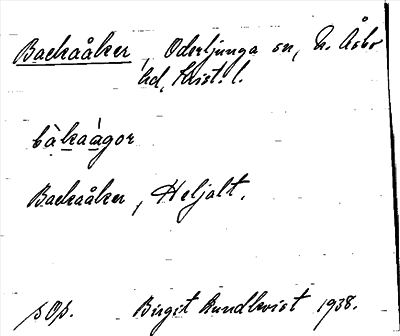 Backaåker, Oderljunga sn, N. Åsbo
hd, Krist. l.
bàkaàgor
Backaåker, Heljalt.
p Op. Birgit Rundkvist 1938.